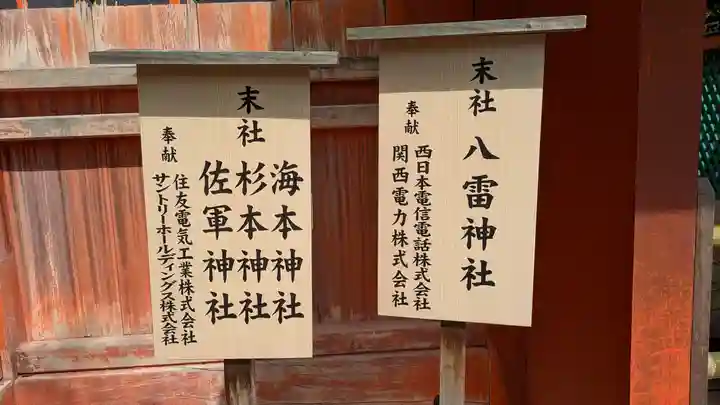 末社
八雷神社
奉献
西日本電信電話株式会社
関西電力株式会社
末社
海本神社
杉本神社
佐軍神社
奉献
住友電気工業株式会社
サントリーホールディングス株式会社